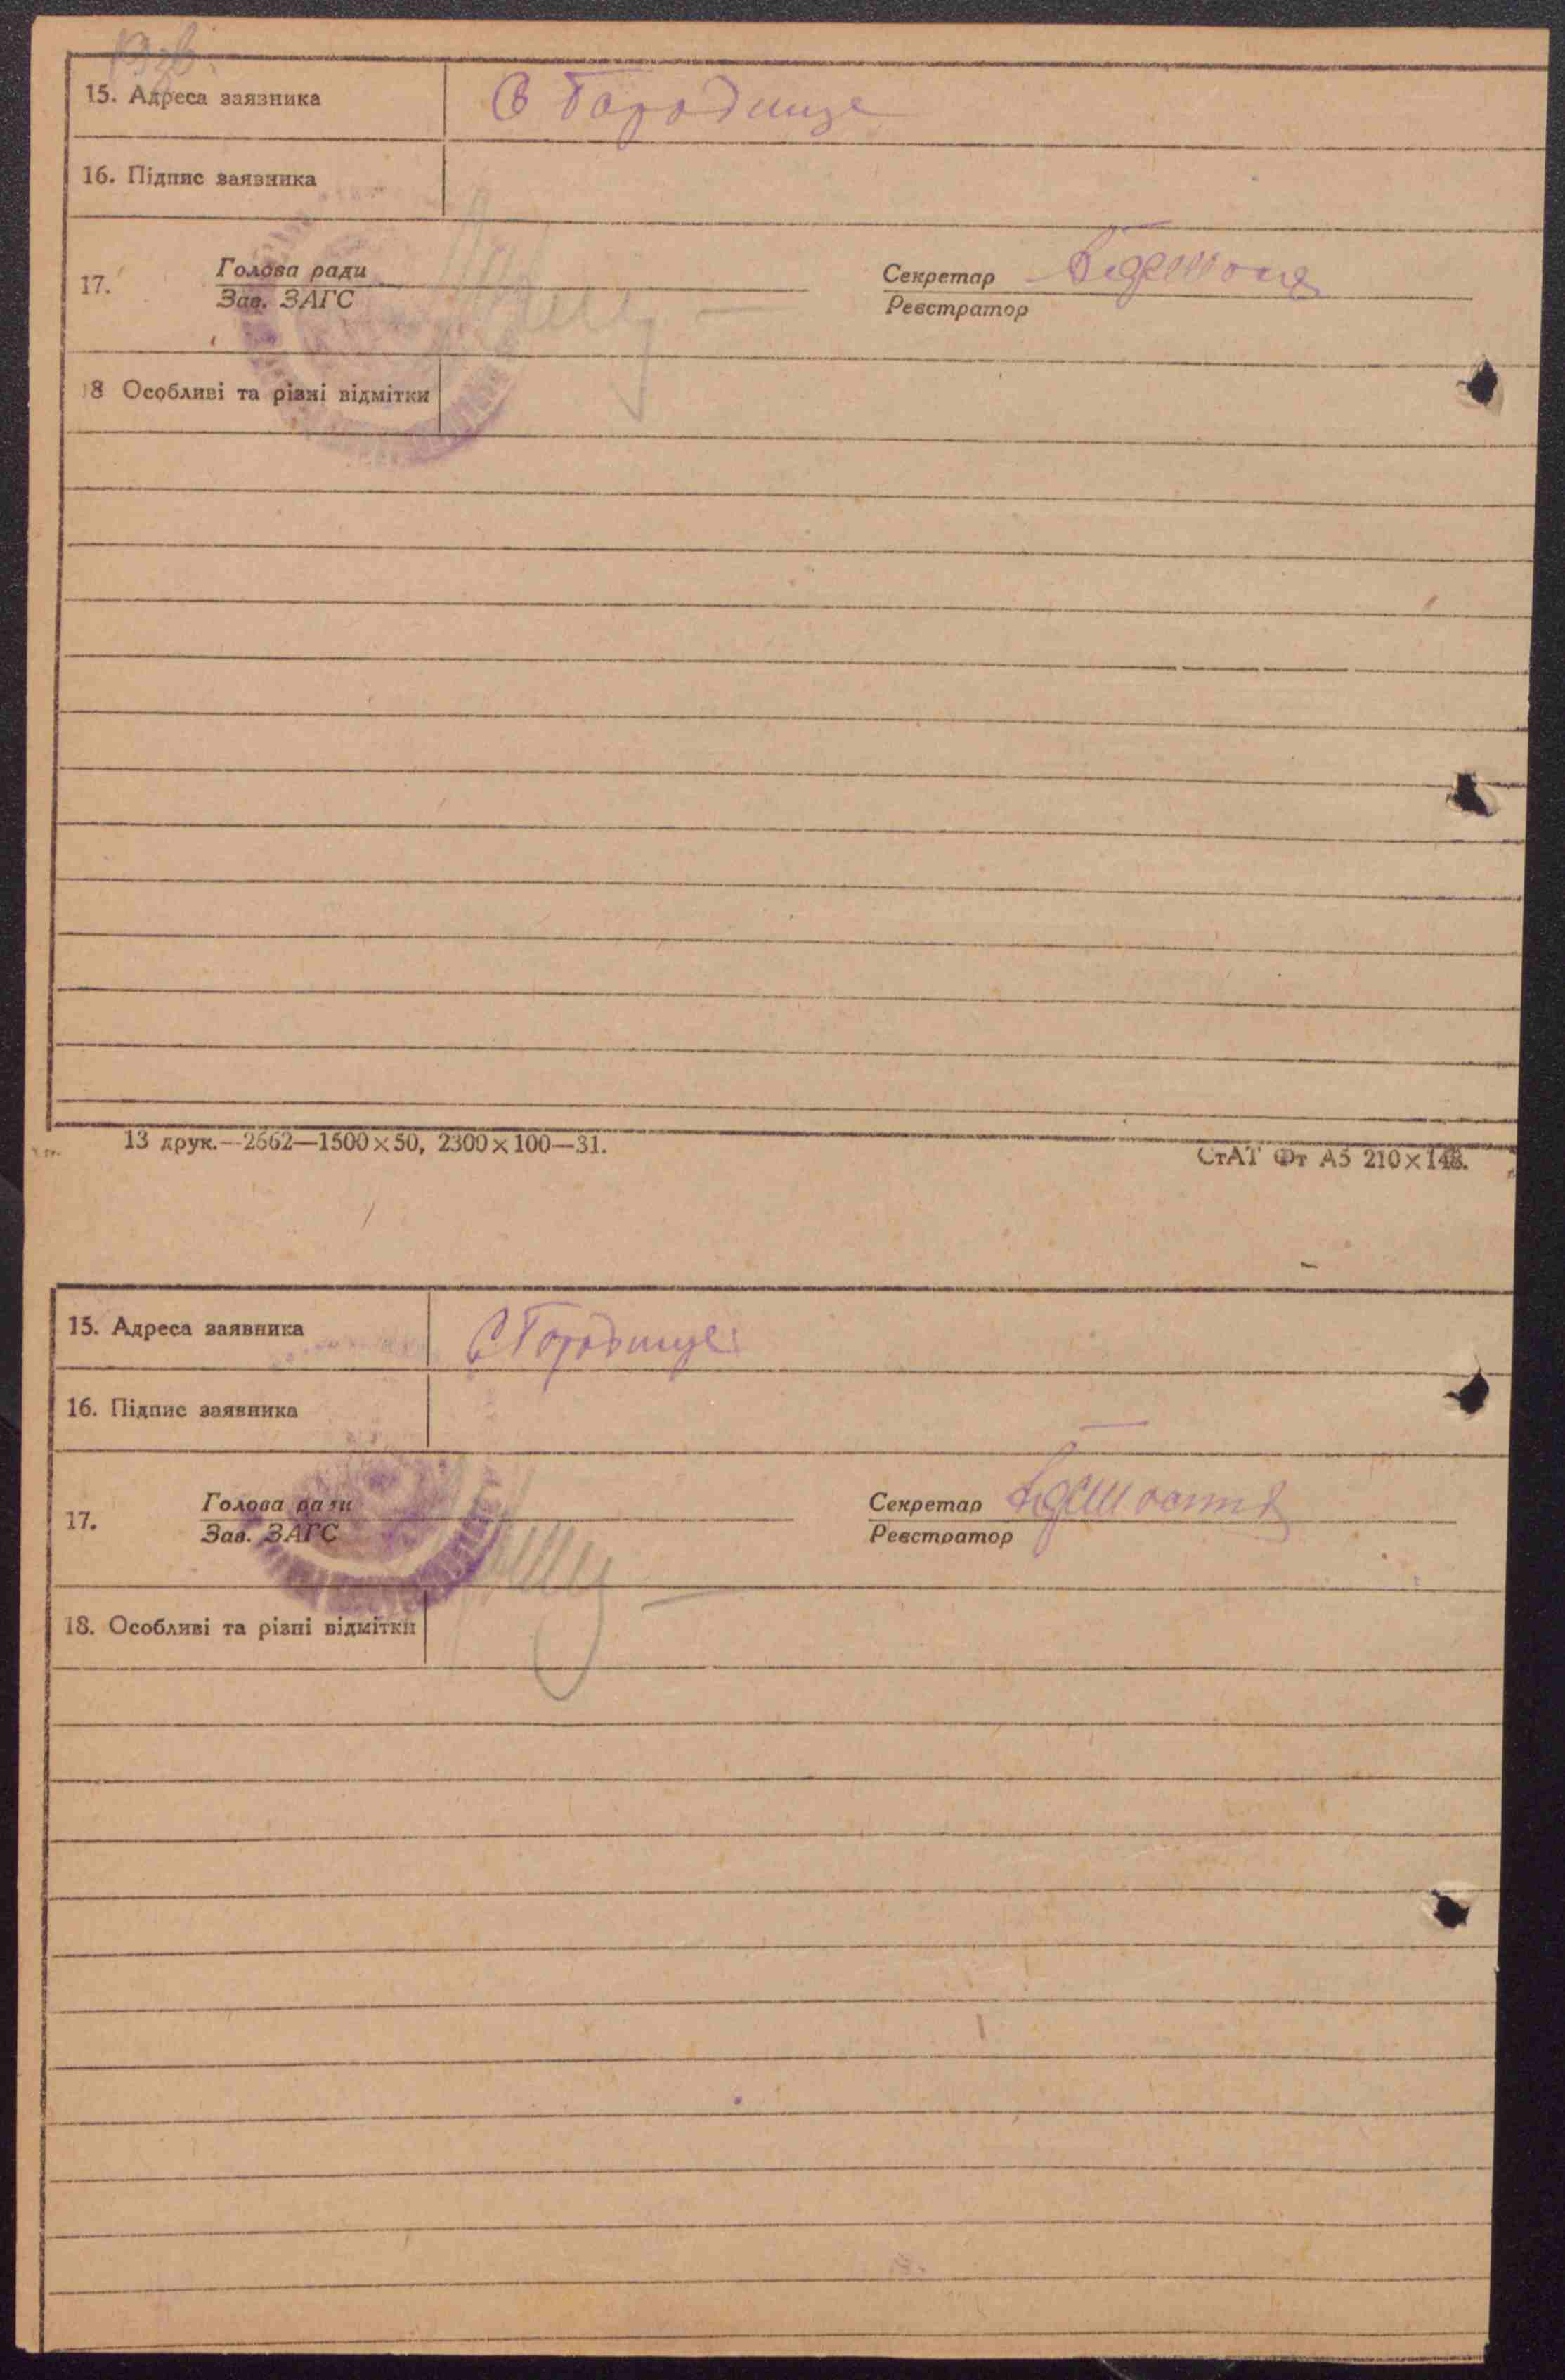 15. Адреса заявника С Городище
16. Підпис заявника
Голова ради Секретар
17.
Зав. ЗАГС Реєстратор
18 Особливі та різні відмітки
13 друк.—2662—1500×50, 2300×100—31. СтАТ Фт А5 210×148.
15. Адреса заявника С Городище
16. Підпис заявника
Голова ради Секретар
17.
Зав. ЗАГС Реєстратор
18. Особливі та різні відмітки